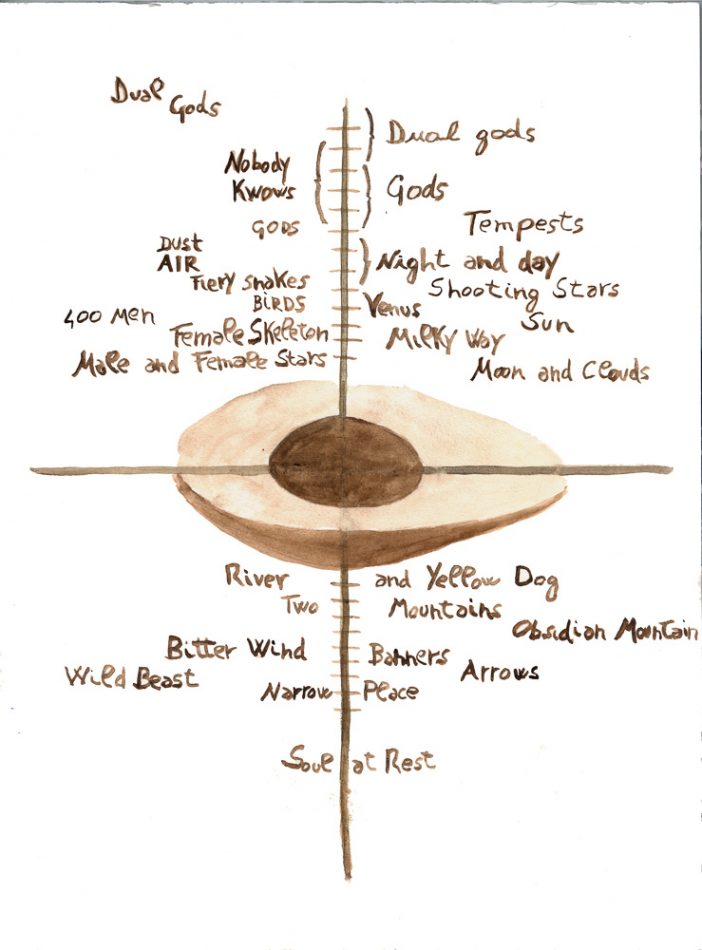 Dual Gods
Dual gods
Nobody
Kwows
Gods
GODS
Tempests
DUST
AIR
Night and day
Fiery snakes
Shooting Stars
BIRDS
Venus
400 Men
Sun
Female Skeleton
Milky Way
Male and Female Stars
Moon and Clouds
River and Yellow Dog
Two Mountains
Obsidian Mountain
Bitter Wind
Banners
Arrows
Wild Beast
Narrow Place
Soul at Rest